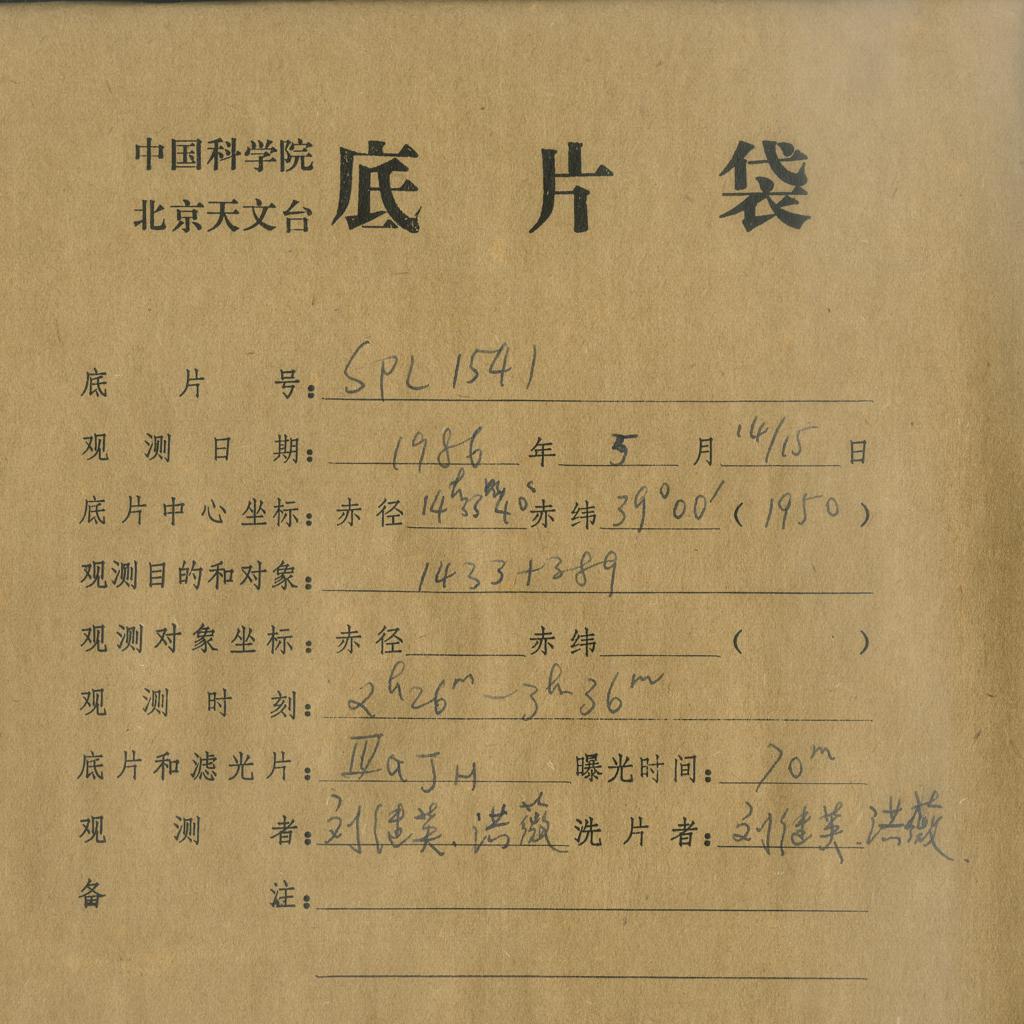 中国科学院
北京天文台
底片袋
底片号：SPL 1541
观测日期：1986年5月14/15日
底片中心坐标：赤径14ʰ33ᵐ40ˢ赤纬39°00′（1950）
观测目的和对象：1433+389
观测对象坐标：赤径 赤纬 （ ）
观测时刻：2ʰ26ᵐ—3ʰ36ᵐ
底片和滤光片：ⅣaJH 曝光时间：70ᵐ
观测者：刘继英.洪薇 洗片者：刘继英.洪薇.
备注：